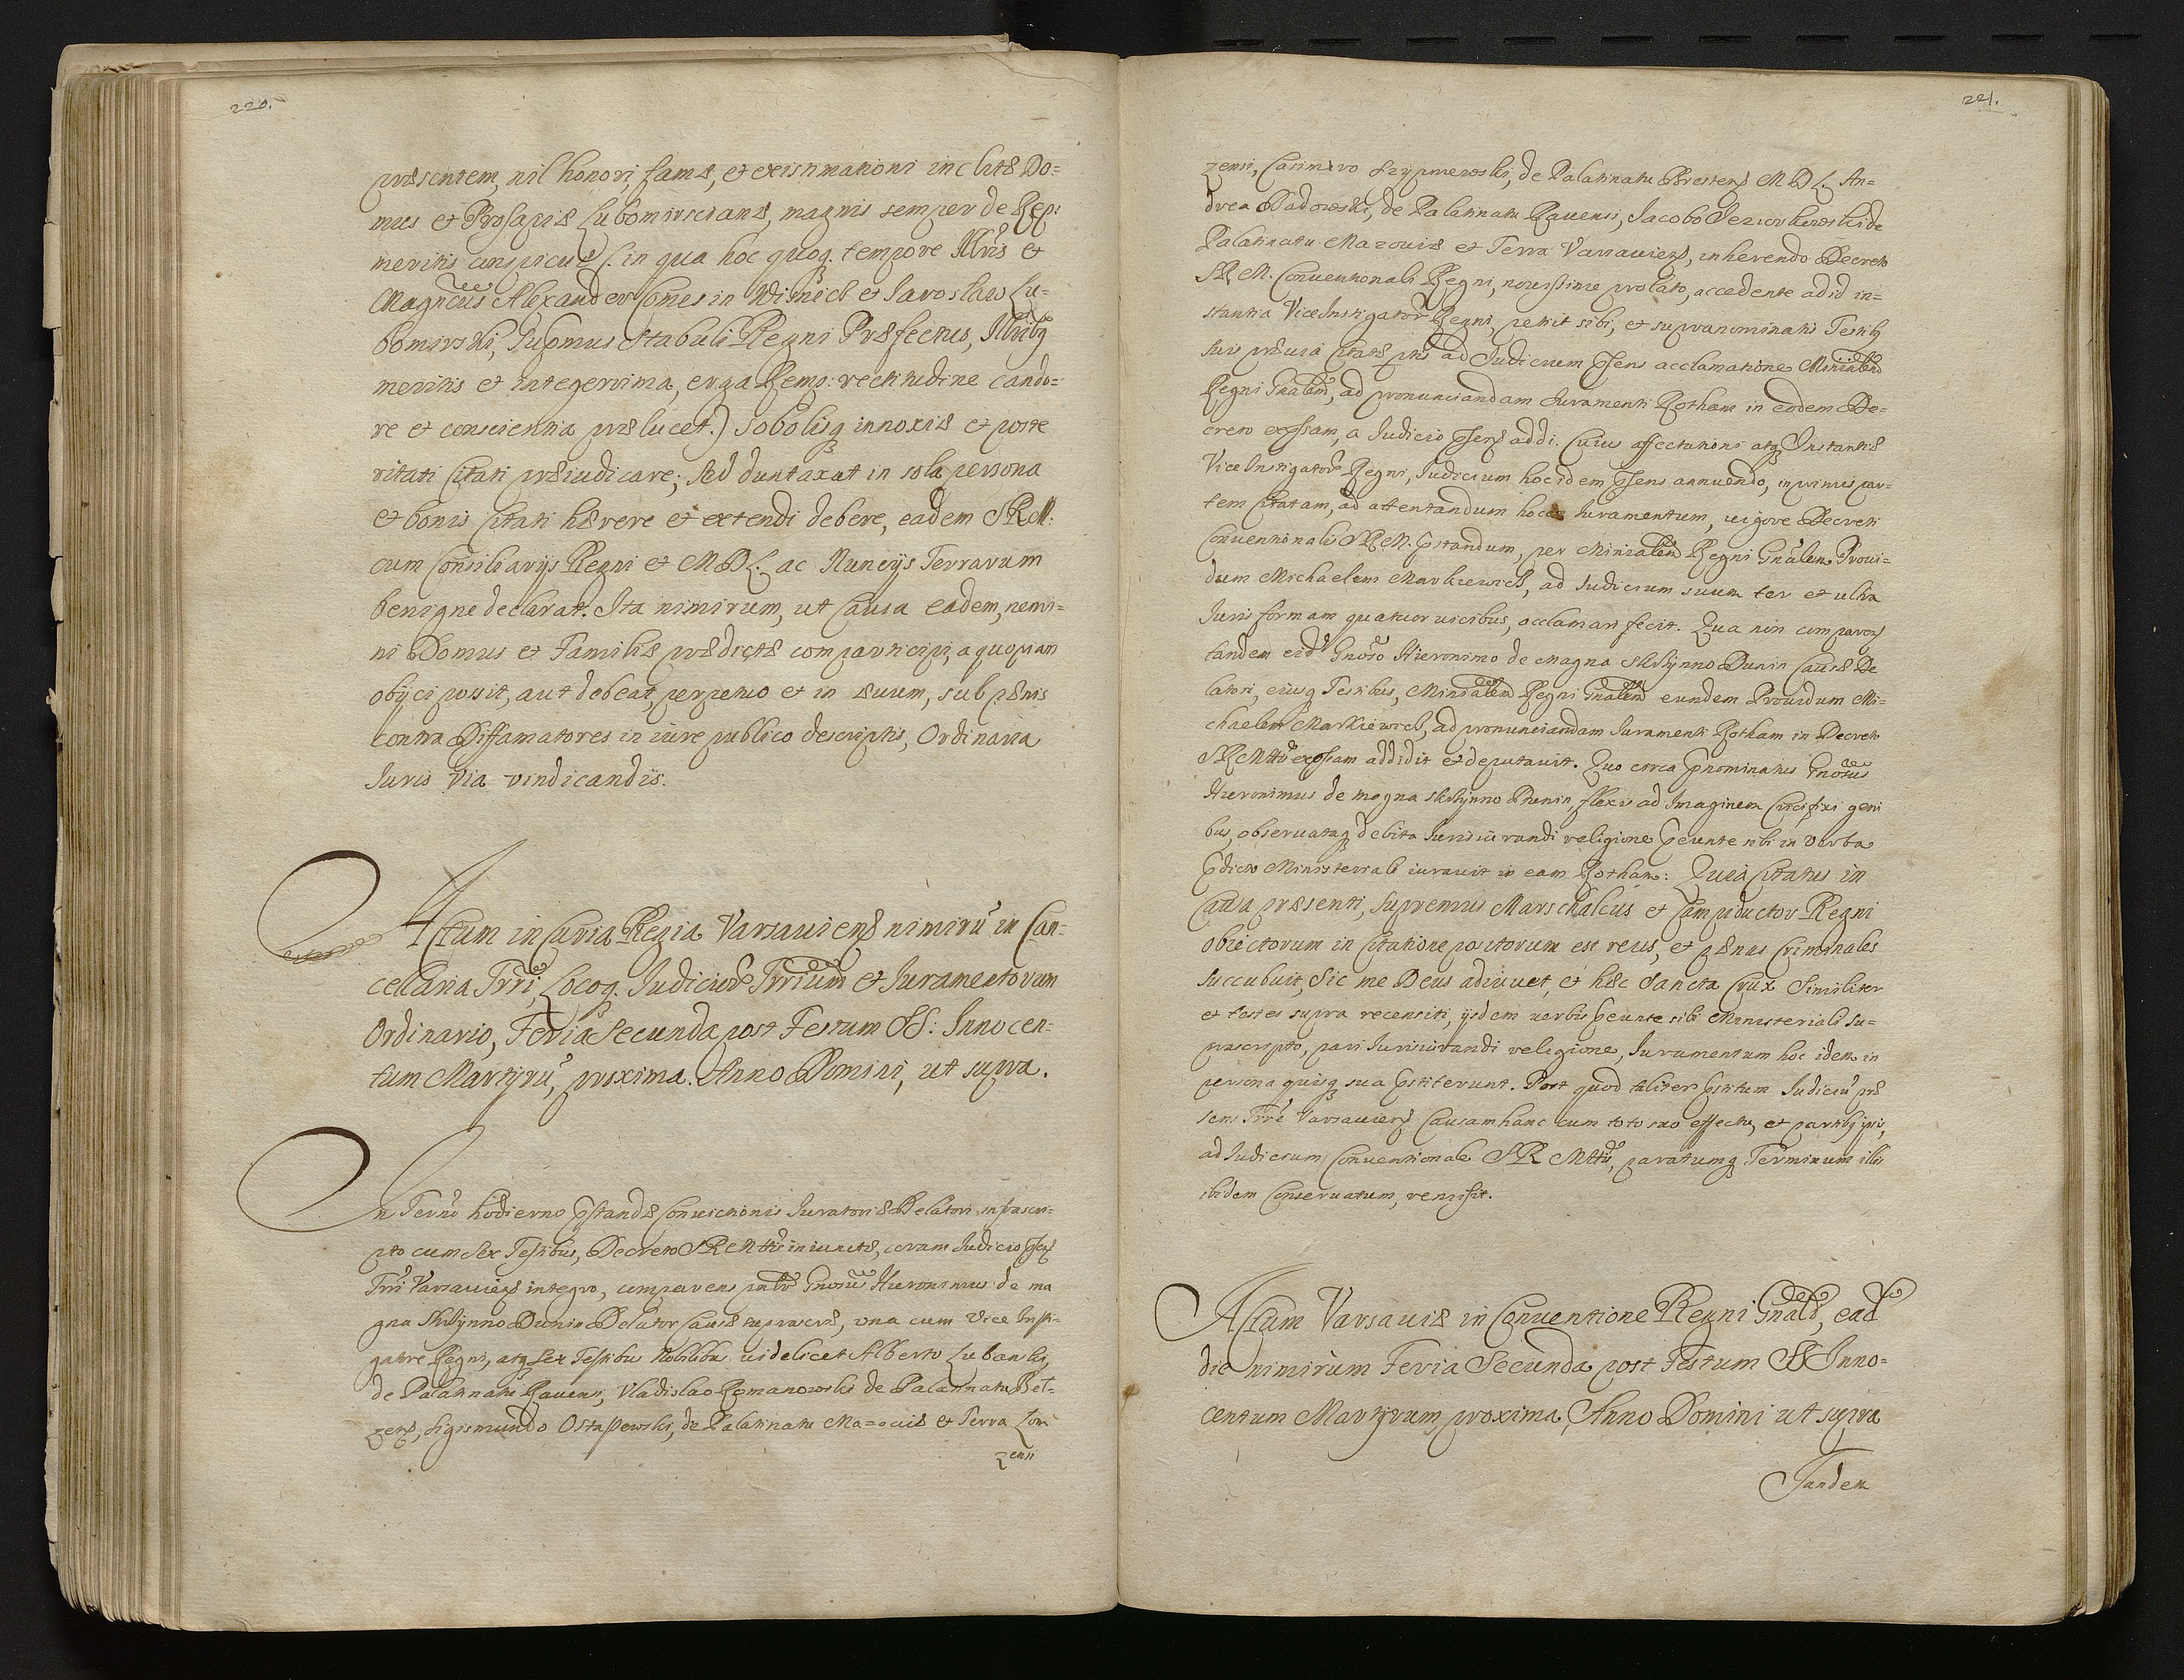 220.
præsentem, nil honori, famæ, et existimationi inclytæ Do=
mus et Prosapiæ Lubomirscianæ, magnis semper de Rep:
meritis conspicuæ (: in qua hoc quoq. tempore Illris et
Magnficus Alexander Comes in Wisnicz et Jaroslaw Lu=
bomirski, Supmus Stabuli Regni Præfectus, Illribq
meritis et integerrima, erga Remp: rectitudine cando=
re et conscientia prælucet.) Sobolisq innoxiæ et poste
ritati Citati præiudicare; Sed duntaxat in sola persona
et bonis Citati hærere et extendi debere, eadem SRM:
cum Consiliarijs Regni et MDL. ac Nuncijs Terrarum
benigne declarat. Ita nimirum, ut Causa eadem, nemi=
ni Domus et Familiæ prædictæ comparticipi, a quopiam
obijci possit, aut debeat, perpetuo et in æuum, sub pænis
contra Diffamatores in iure publico descriptis, Ordinaria
Iuris via vindicandis.
Actum in Curia Regia Varsauiens nimirũ in Can=
cellaria Trri, Locoq. Judicior Trrium et Juramentorum
Ordinario, Feria Secunda post Festum SS: Innocen=
tum Martyrũ, proxima. Anno Domini, ut supra.
In Termo hodierno pstandæ Conuictionis Juratoriæ Delatori infrascri=
pto cum Sex Testibus, Decreto SRMttis iniunctæ, coram Judicio psen
Trri Varsauien integro, comparens pntr Gnosus Hieronimus de ma
gna Skrzynno Dunin Delator Causæ suprascræ, una cum Vice Insti=
gatore Regni, atq Sex Testibus Nobilibus uidelicet Alberto Lubanski,
de Palatinatu Rauens, Vladislao Romanowski de Palatinatu Bel=
zens, Sigismundo Ostaszewski, de Palatinatu Mazouiæ et Terra Lom
zensi
221.
zensi, Casimiro Szypniewski, de Palatinatu Brestens MDL. An=
drea Dadowski, de Palatinatu Rauensi, Jacobo Jeziorkowski de
Palatinatu Mazouiæ et Terra Varsauiens, inherendo Decreto
SRM. Conuentionali Regni, nouissime prolato, accedente ad id in=
stantia ViceInstigator Regni, petijt sibi, et supranominatis Testib
suis præuia Citatæ ptis ad Judicium psens acclamatione Minialem
Regni Gnalem, ad pronunciandam Juramenti Rotham in eodem De=
creto expssam, a Judicio psens addi. Cuius affectationi atq Instantiæ
ViceInstigatoris Regni, Judicium hoc idem psens annuendo, inprimis par=
tem Citatam, ad attentandum hocce Juramentum, uigore Decreti
Conuentionalis SRM. pstandum, per Minialem Regni Gnalem Proui=
dum Michaelem Markiewicz, ad Judicium suum ter et ultra
Iuris formam quatuor uicibus, acclamari fecit. Qua non comparen
tandem eid Gnoso Hieronimo de Magna Skrzynno Dunin Causæ De
latori, eiusq Testibus, Minialem Regni Gnalem eundem Prouidum Mi=
chaelem Markiewicz, ad pronunciandam Juramenti Rotham in Decreto
SRMttis expssam addidit et deputauit. Quo circa pnominatus Gnosus
Hieronimus de magna Skrzynno Dunin, flexis ad Imaginem Crucifixi geni
bus, obseruataq debita Jurisiurandi religione peunte sibi in verba
pdicto Ministeriali iurauit in eam Rotham: Quia Citatus in
causa præsenti, Supremus Marschalcus et Campiductor Regni
obiectorum in Citatione positorum est reus, et pænas Criminales
succubuit, Sic me Deus adiuuet, et hæc Sancta Crux Similiter
et testes supra recensiti, ijsdem uerbis peunte sibi Ministeriali su=
prascripto, pari Jurisiurandi religione, Juramentum hoc idem in
persona quisq sua pstiterunt. Post quod taliter pstitum Judiciũ præ
sens Trre Varsauiens Causam hanc cum toto suo effectu, et partibq ipsis,
ad Judicium Conuentionale SR Mttis, paratumq Terminum illis
ibidem Conseruatum, remisit.
Actum Varsauiæ in Conuentione Regni Gnali, ead
die nimirum Feria Secunda post Festum SS Inno=
centum Martyrum proxima, Anno Domini ut supra
Tandem